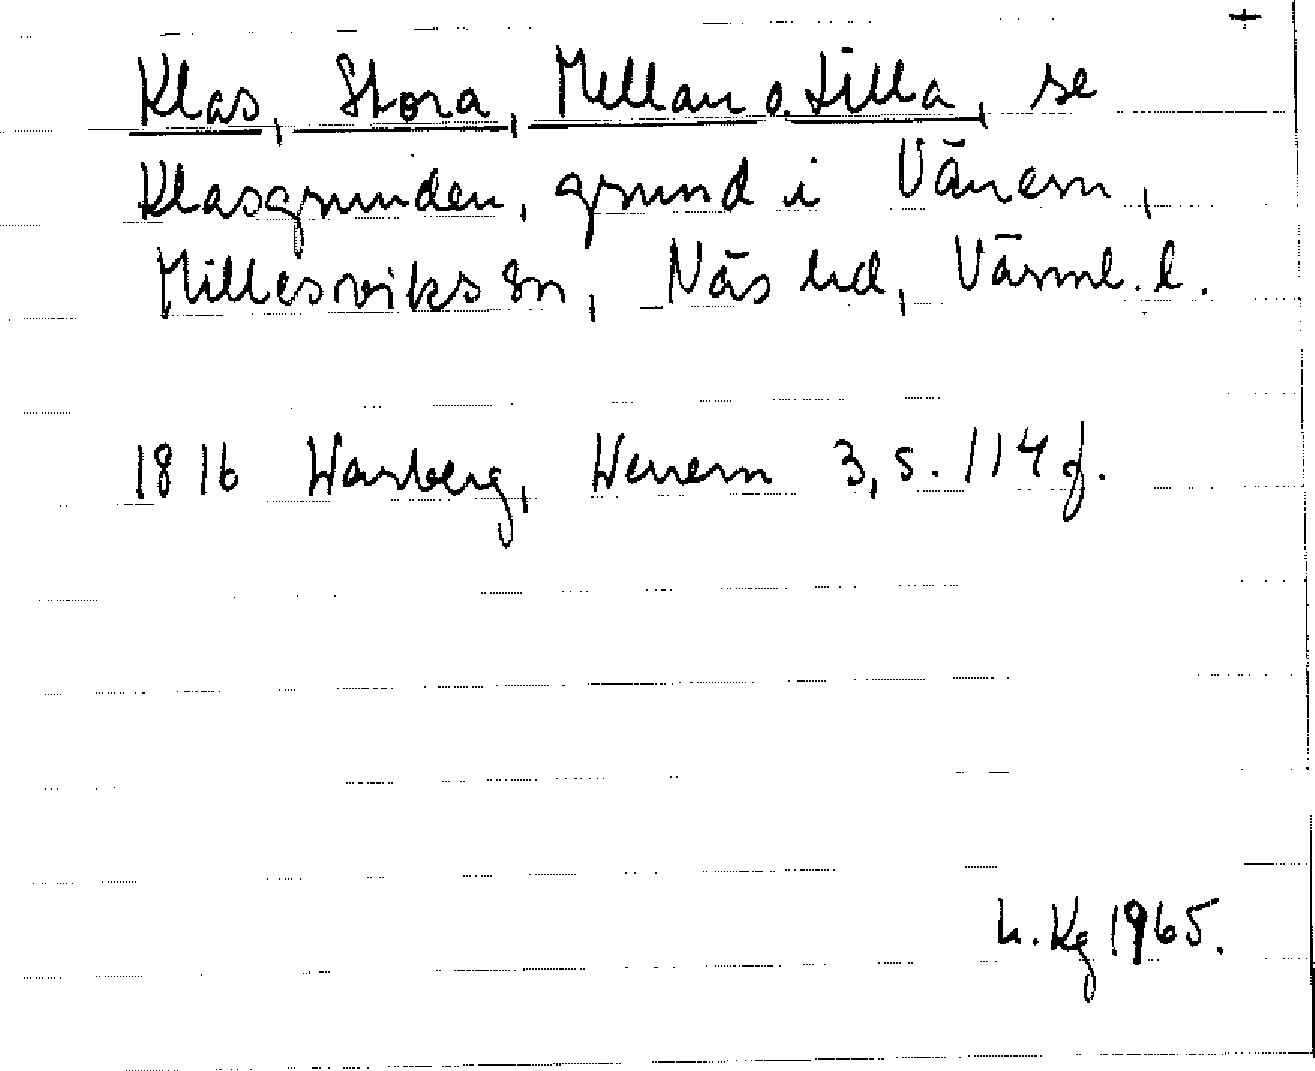 +
Klas, Stora, Mellan o. Lilla, se
Klasgrunden, grund i Vänern,
Millesviks sn, Näs hd, Värml. l.
1816 Warberg, Wenern 3, s. 114 f.
h. Kg 1965.